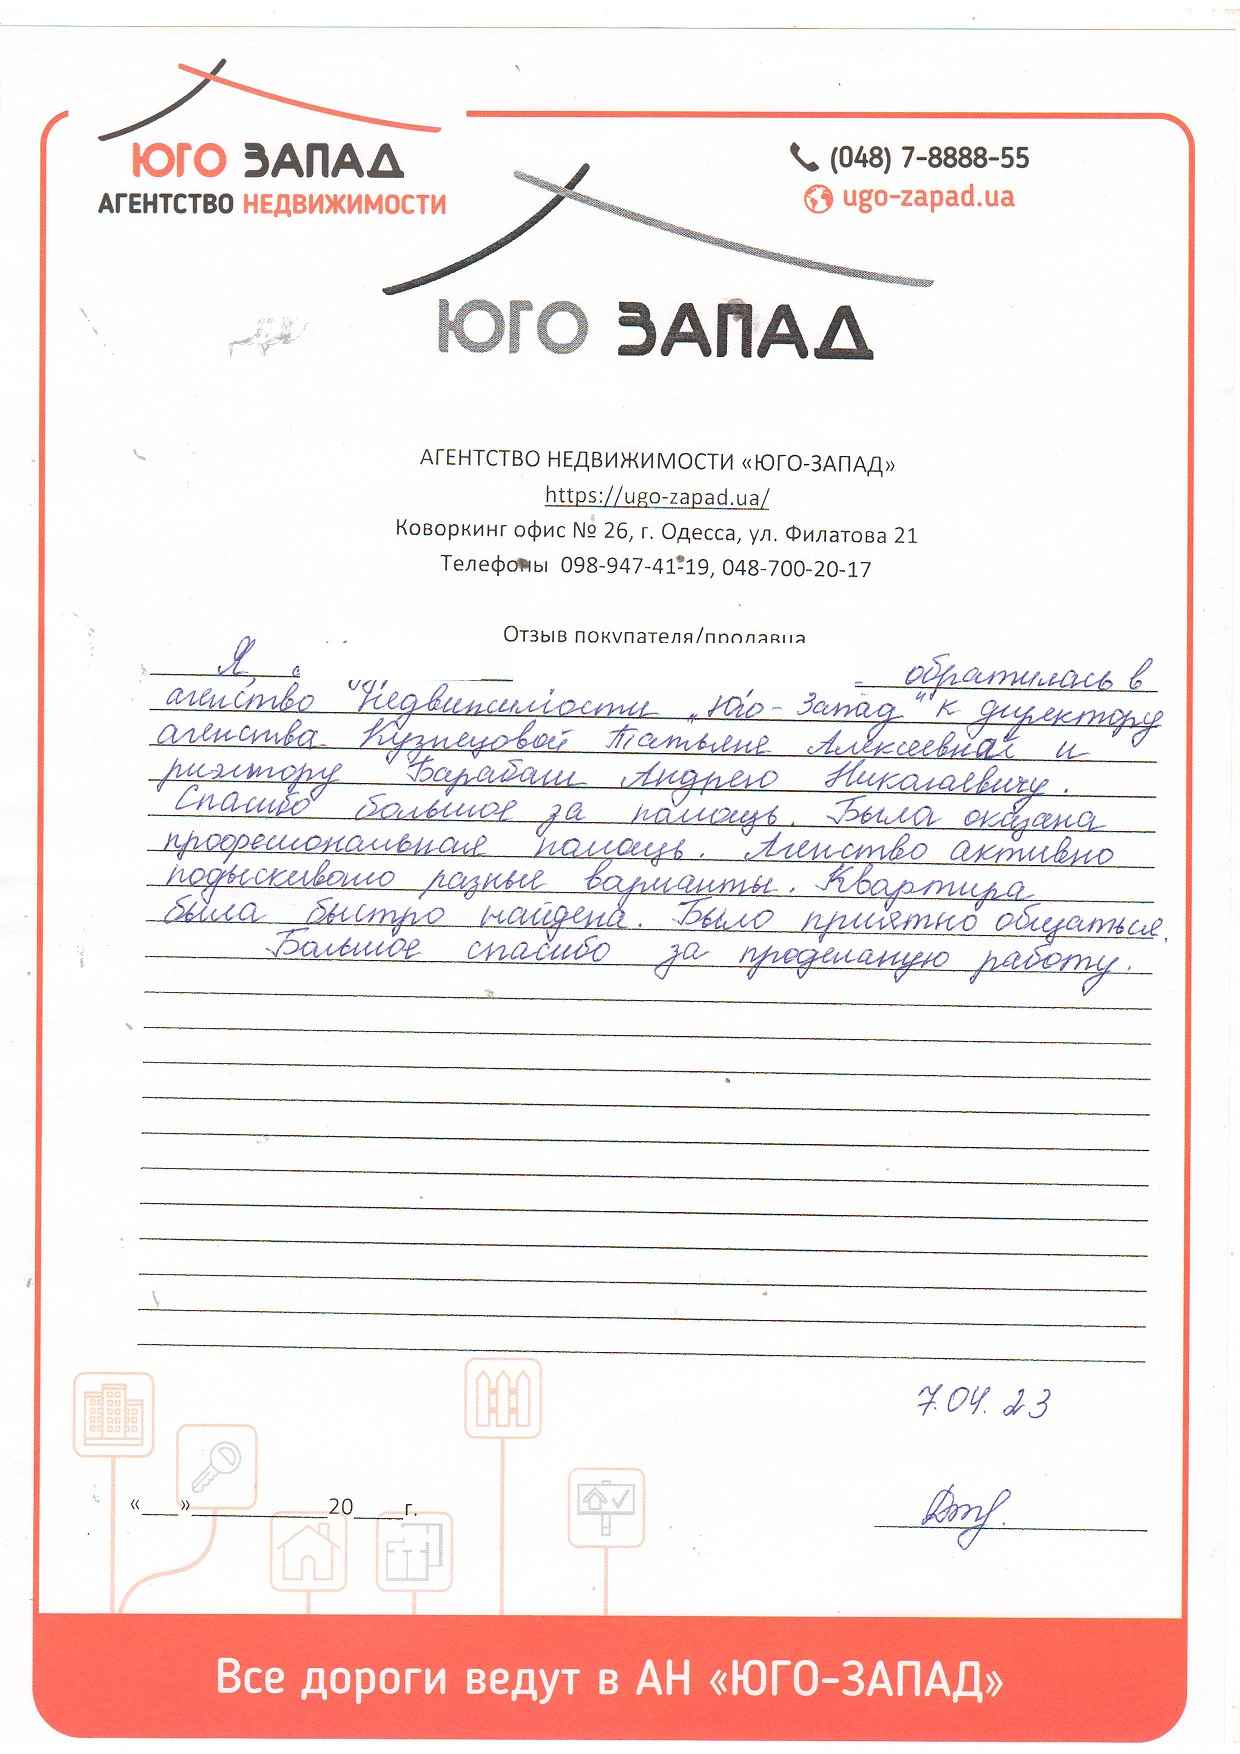 ЮГО ЗАПАД
АГЕНТСТВО НЕДВИЖИМОСТИ
(048) 7-8888-55
ugo-zapad.ua
ЮГО ЗАПАД
АГЕНТСТВО НЕДВИЖИМОСТИ «ЮГО-ЗАПАД»
https://ugo-zapad.ua/
Коворкинг офис № 26, г. Одесса, ул. Филатова 21
Телефоны 098-947-41-19, 048-700-20-17
Отзыв покупателя/продавца
Я обратилась в
агенство "Недвижимости „Юго-Запад" к директору
агенства Кузнецовой Татьяне Алексеевной и
риэлтору Барабаш Андрею Николаевичу.
Спасибо большое за помощь. Была оказана
профессиональная помощь. Агенство активно
подыскивало разные варианты. Квартира
была быстро найдена. Было приятно общаться.
Большое спасибо за проделаную работу.
7.04.23
«___»____________20____г.
Все дороги ведут в АН «ЮГО-ЗАПАД»